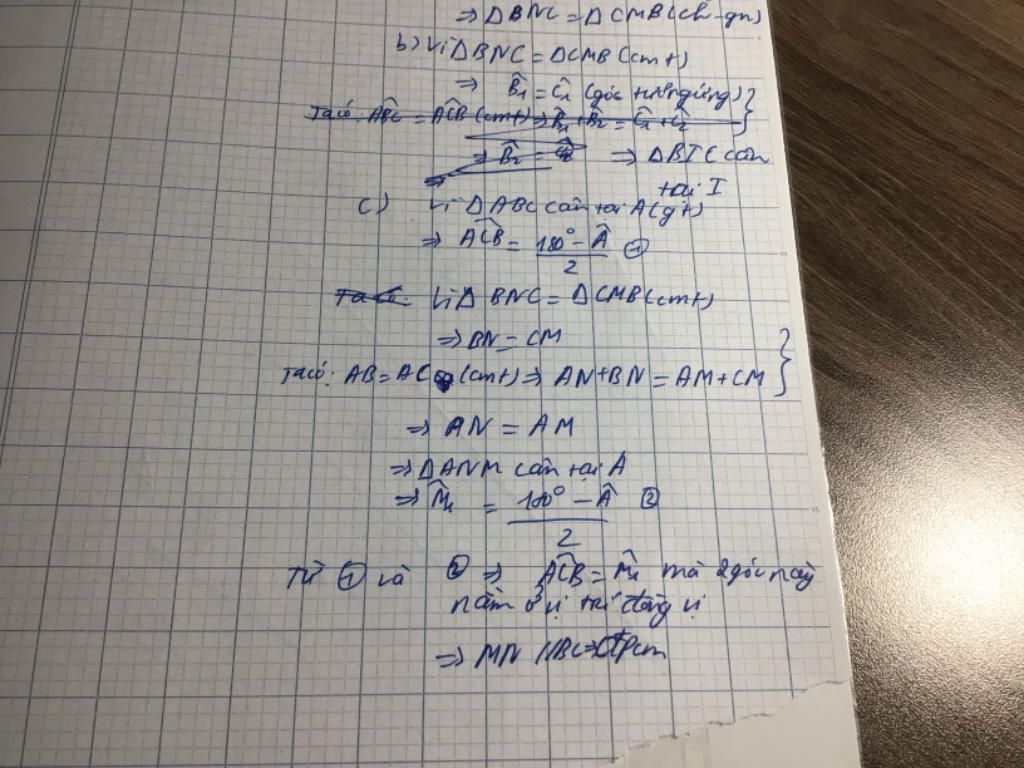 ⇒ ΔBNC = ΔCMB (ch - gn)
b) Vì ΔBNC = ΔCMB (cmt)
⇒ B̂₁ = Ĉ₁ (góc tương ứng) }
Ta có: ABC = ACB (cmt) ⇒ B̂₁ + B̂₂ = Ĉ₁ + Ĉ₂
⇒ B̂₂ = ⇒ ΔBIC cân
tại I
c) Vì ΔABC cân tại A (gt)
⇒ ACB = (180° - Â)/2 ①
Ta có: Vì Δ BNC = ΔCMB (cmt)
⇒ BN = CM
Ta có: AB = AC (cmt) ⇒ AN + BN = AM + CM }
⇒ AN = AM
⇒ ΔANM cân tại A
⇒ M̂₁ = (180° - Â)/2 ②
Từ ① và ② ⇒ ACB = M̂₁ mà 2 góc này
nằm ở vị trí đồng vị
⇒ MN // BC ⇒ đpcm